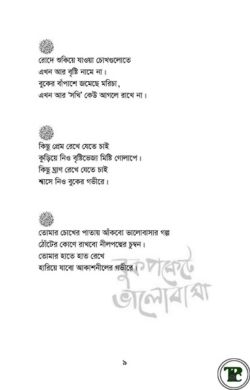 রোদে শুকিয়ে যাওয়া চোখগুলোতে
এখন আর বৃষ্টি নামে না।
বুকের বাঁপাশে জমেছে মরিচা,
এখন আর 'সখি' কেউ আগলে রাখে না।
কিছু প্রেম রেখে যেতে চাই
কুড়িয়ে নিও বৃষ্টিভেজা মিষ্টি গোলাপে।
কিছু ঘ্রাণ রেখে যেতে চাই
শ্বাসে নিও বুকের গভীরে।
তোমার চোখের পাতায় আঁকবো ভালোবাসার গল্প
ঠোঁটের কোণে রাখবো নীলপদ্মের চুম্বন।
তোমার হাতে হাত রেখে
হারিয়ে যাবো আকাশনীলের গভীরে।
বুকপকেটে
ভালোবাসা
৯